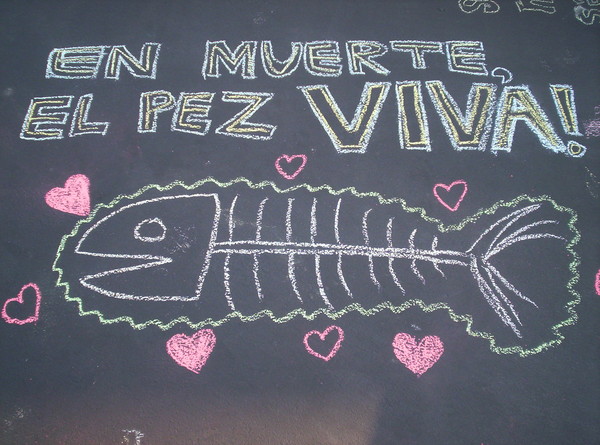 EN MUERTE,
EL PEZ VIVA!